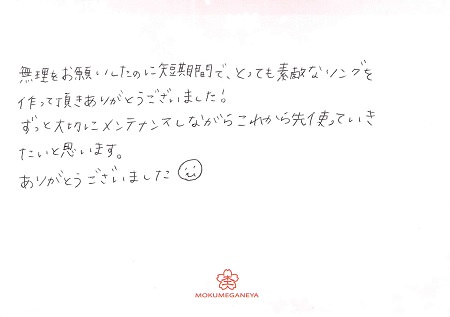 無理をお願いしたのに短期間で、とっても素敵なリングを
作って頂きありがとうございました!
ずっと大切にメンテナンスしながらこれから先使っていき
たいと思います。
ありがとうございました
MOKUMEGANEYA